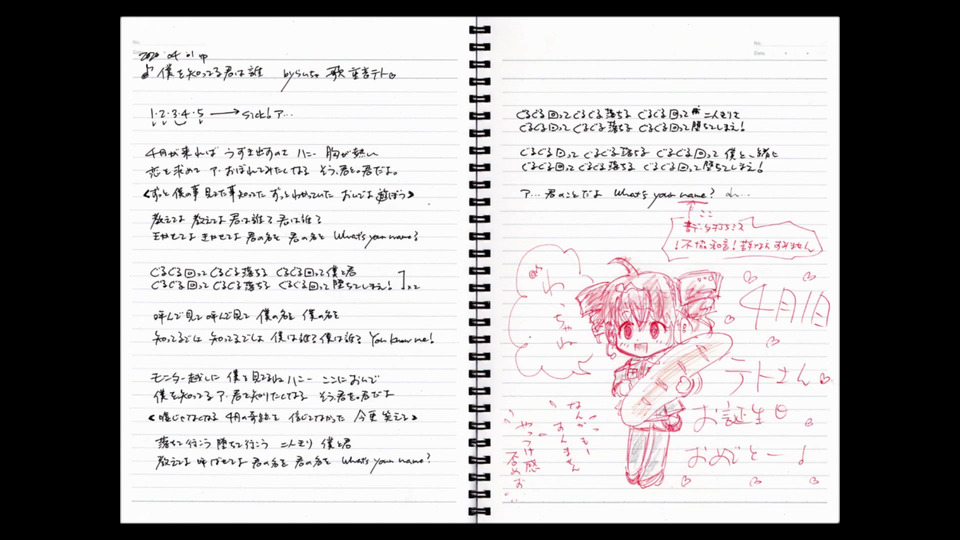 2020 04 01 up
♪ 僕を知ってる君は誰 by 歌 重音テト
1・2・3・4・5 → sick! ア…
4月が来れば うずき出すのよ ハニー 胸が熱い
恋を求めて ア・おぼれてみたくなる そう、君を。君だよ。
くずっと僕の事 見てた事知ってた ずっとわかっていた おいでよ 遊ぼう>
教えてよ 教えてよ 君は誰? 君は誰?
きかせてよ きかせてよ 君の名を 君の名を What's your name?
ぐるぐる回って ぐるぐる落ちる ぐるぐる回って 僕と君
ぐるぐる回って ぐるぐる落ちる ぐるぐる回って 堕ちてしまえ!
呼んで見て 呼んで見て 僕の名を 僕の名を
知ってるでしょ 知ってるでしょ 僕は誰? 僕は誰? You know me!
モニター越しに 僕を見てるね ハニー ここにおいで
僕を知ってる ア・君を知りたくなる そう、君を。君だよ
<嘘じゃなくなる 4月の奇跡って 信じてなかった 今更 笑えて>
落ちて行こう 堕ちて行こう 二人きり 僕と君
教えてよ 呼ばせてよ 君の名を 君の名を What's your name?
No.
Date
ぐるぐる回って ぐるぐる落ちる ぐるぐる回って 二人きりで
ぐるぐる回って ぐるぐる落ちる ぐるぐる回って 堕ちてしまえ!
ぐるぐる回って ぐるぐる落ちる ぐるぐる回って 僕と一緒に
ぐるぐる回って ぐるぐる落ちる ぐるぐる回って 堕ちてしまえ!
ア… 君のことだよ What's your name?
ここ
!不協和音! すみません
4月1日
テトさん
お誕生日
おめでとー!
なんかもー
すみません
やっつけ感
否めない